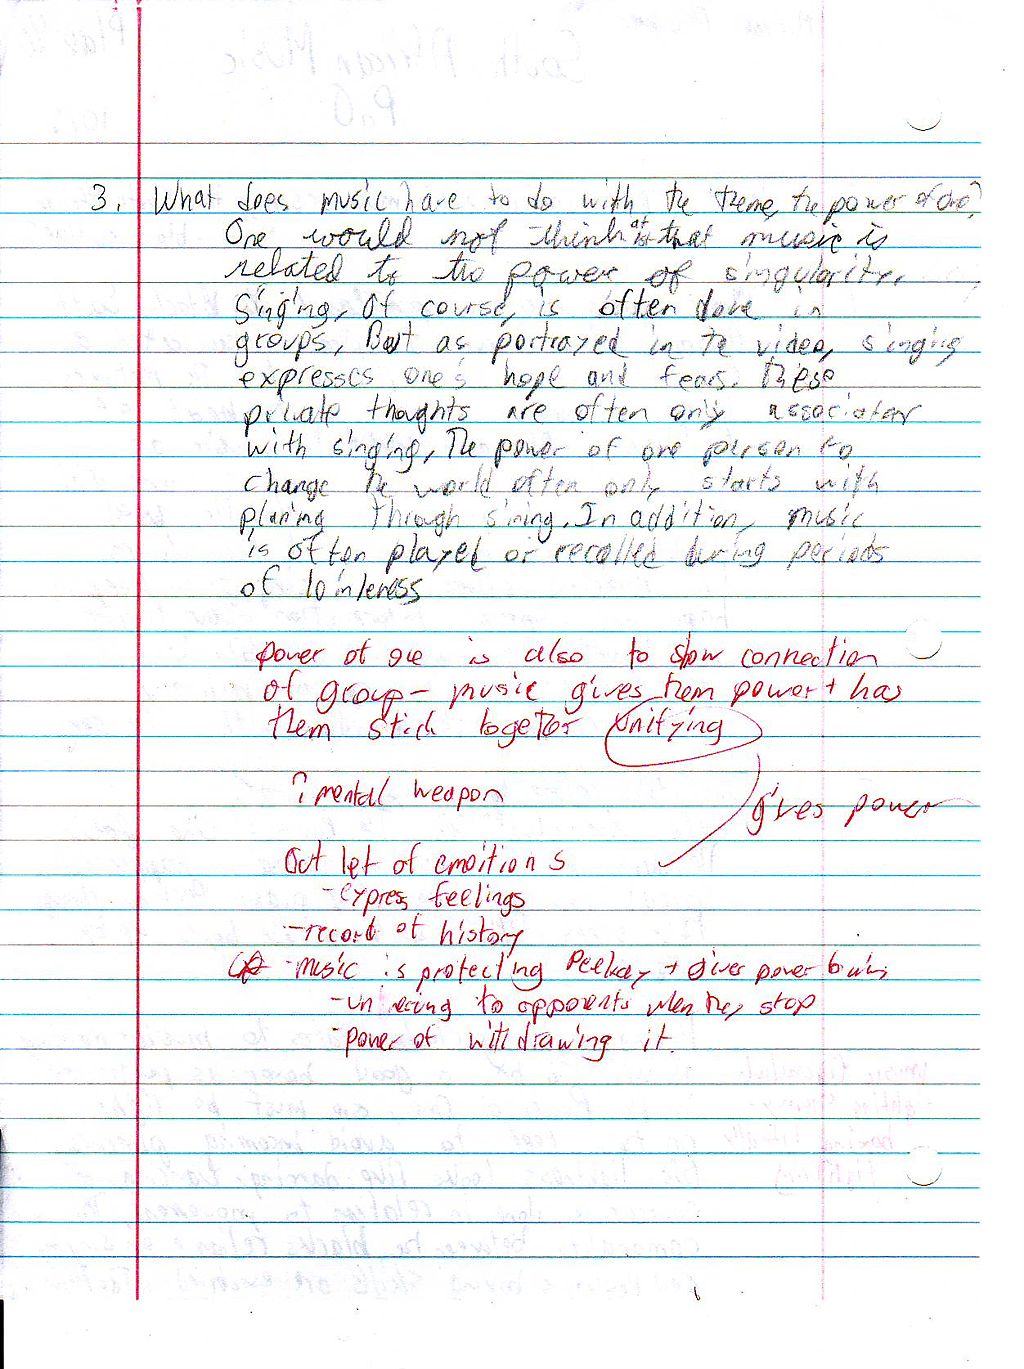 3. What does music have to do with the theme, the power of one?
One would not think at that music is
related to the power of singularity.
Singing, of course, is often done in
groups, But as portrayed in te video, singing
expresses one's hope and fears. These
private thoughts are often only
with singing, The power of one person to
change the world often only starts with
planing through sining. In addition, music
is often played or recalled during periods
of
power of one is also to show connection
of group - music gives them power + has
them stick together unifying
mental weapon
gives power
Out let of emoitions
- express feelings
- record of history
- music is protecting Peekay + gives power
- to opponents when they stop
- power of withdrawing it.